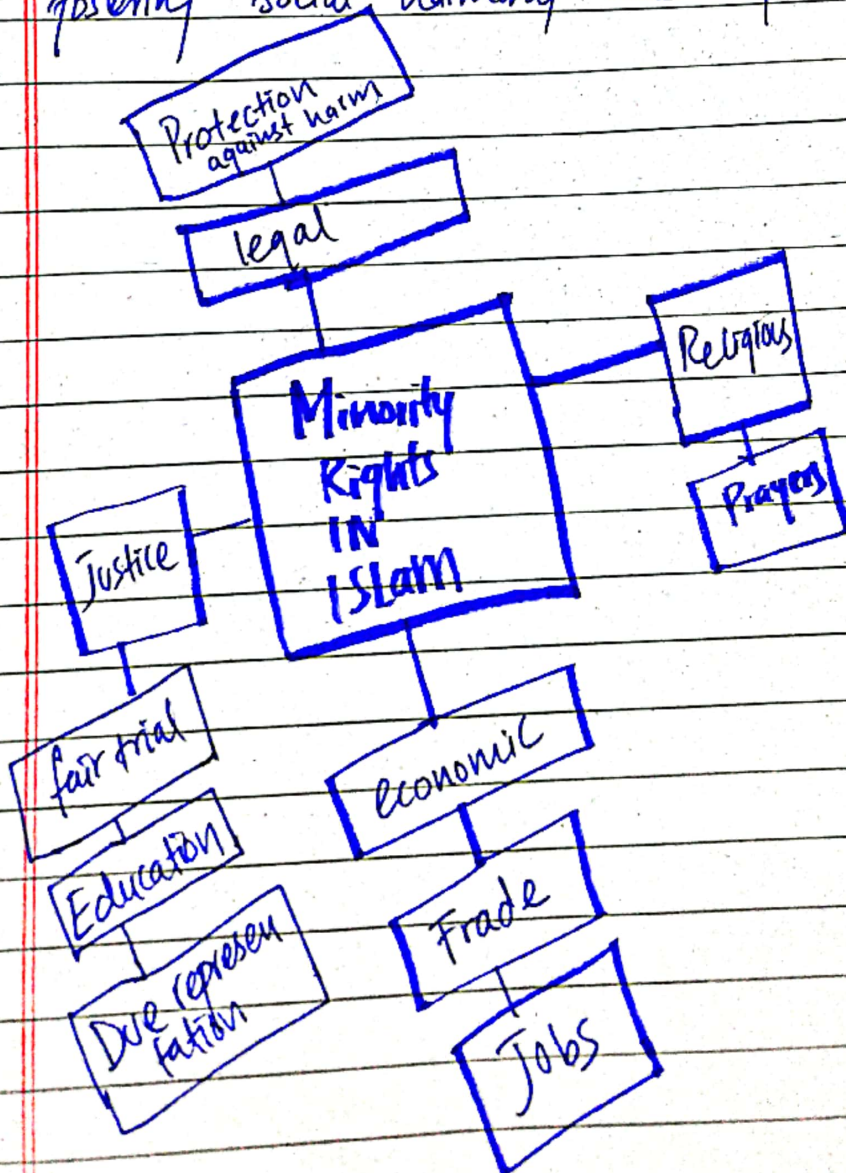 fostering social harmony
Protection
against harm
legal
Religious
Prayers
Minority
Rights
IN
ISLam
Justice
fair trial
Education
Due represen
tation
economic
Frade
Jobs